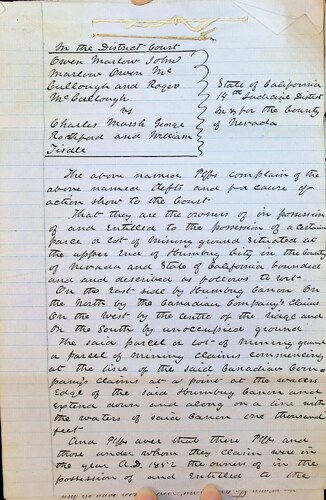 In the District Court
Owen Marlow John
Marlow Owen Mc
Cullough and Roger
McCullough
vs
Charles Marsh George
Rochford and William
Tisdle
State of California
14th Judicial District
In & for the County
of Nevada
The above named Plffs complain of the
above named defts and for cause of
action show to the Court
That they are the owners of in possession
of and Entitled to the possession of a certain
parce or lot of mining ground situated at
the upper End of Humbug City in the County
of Nevada and State of California bounded
and and described as follows to wit
On the East side by Humbug Canon On
the North by the Canadian Company's claims
On the West by the centre of the ridge and
On the South by unoccupied ground
The said parcel or lot of mining ground
a parcel of mining claims commencing
at the line of the said Canadian Com-
pany's claims at a point at the waters
Edge of the said Humbug Canon and
Extend down and along on a line with
the waters of said Canon one thousand
feet
And Plffs aver that them Plffs and
those under whom they claim were in
the year A.D. 1852 the owners of in the
possession of and Entitled to the